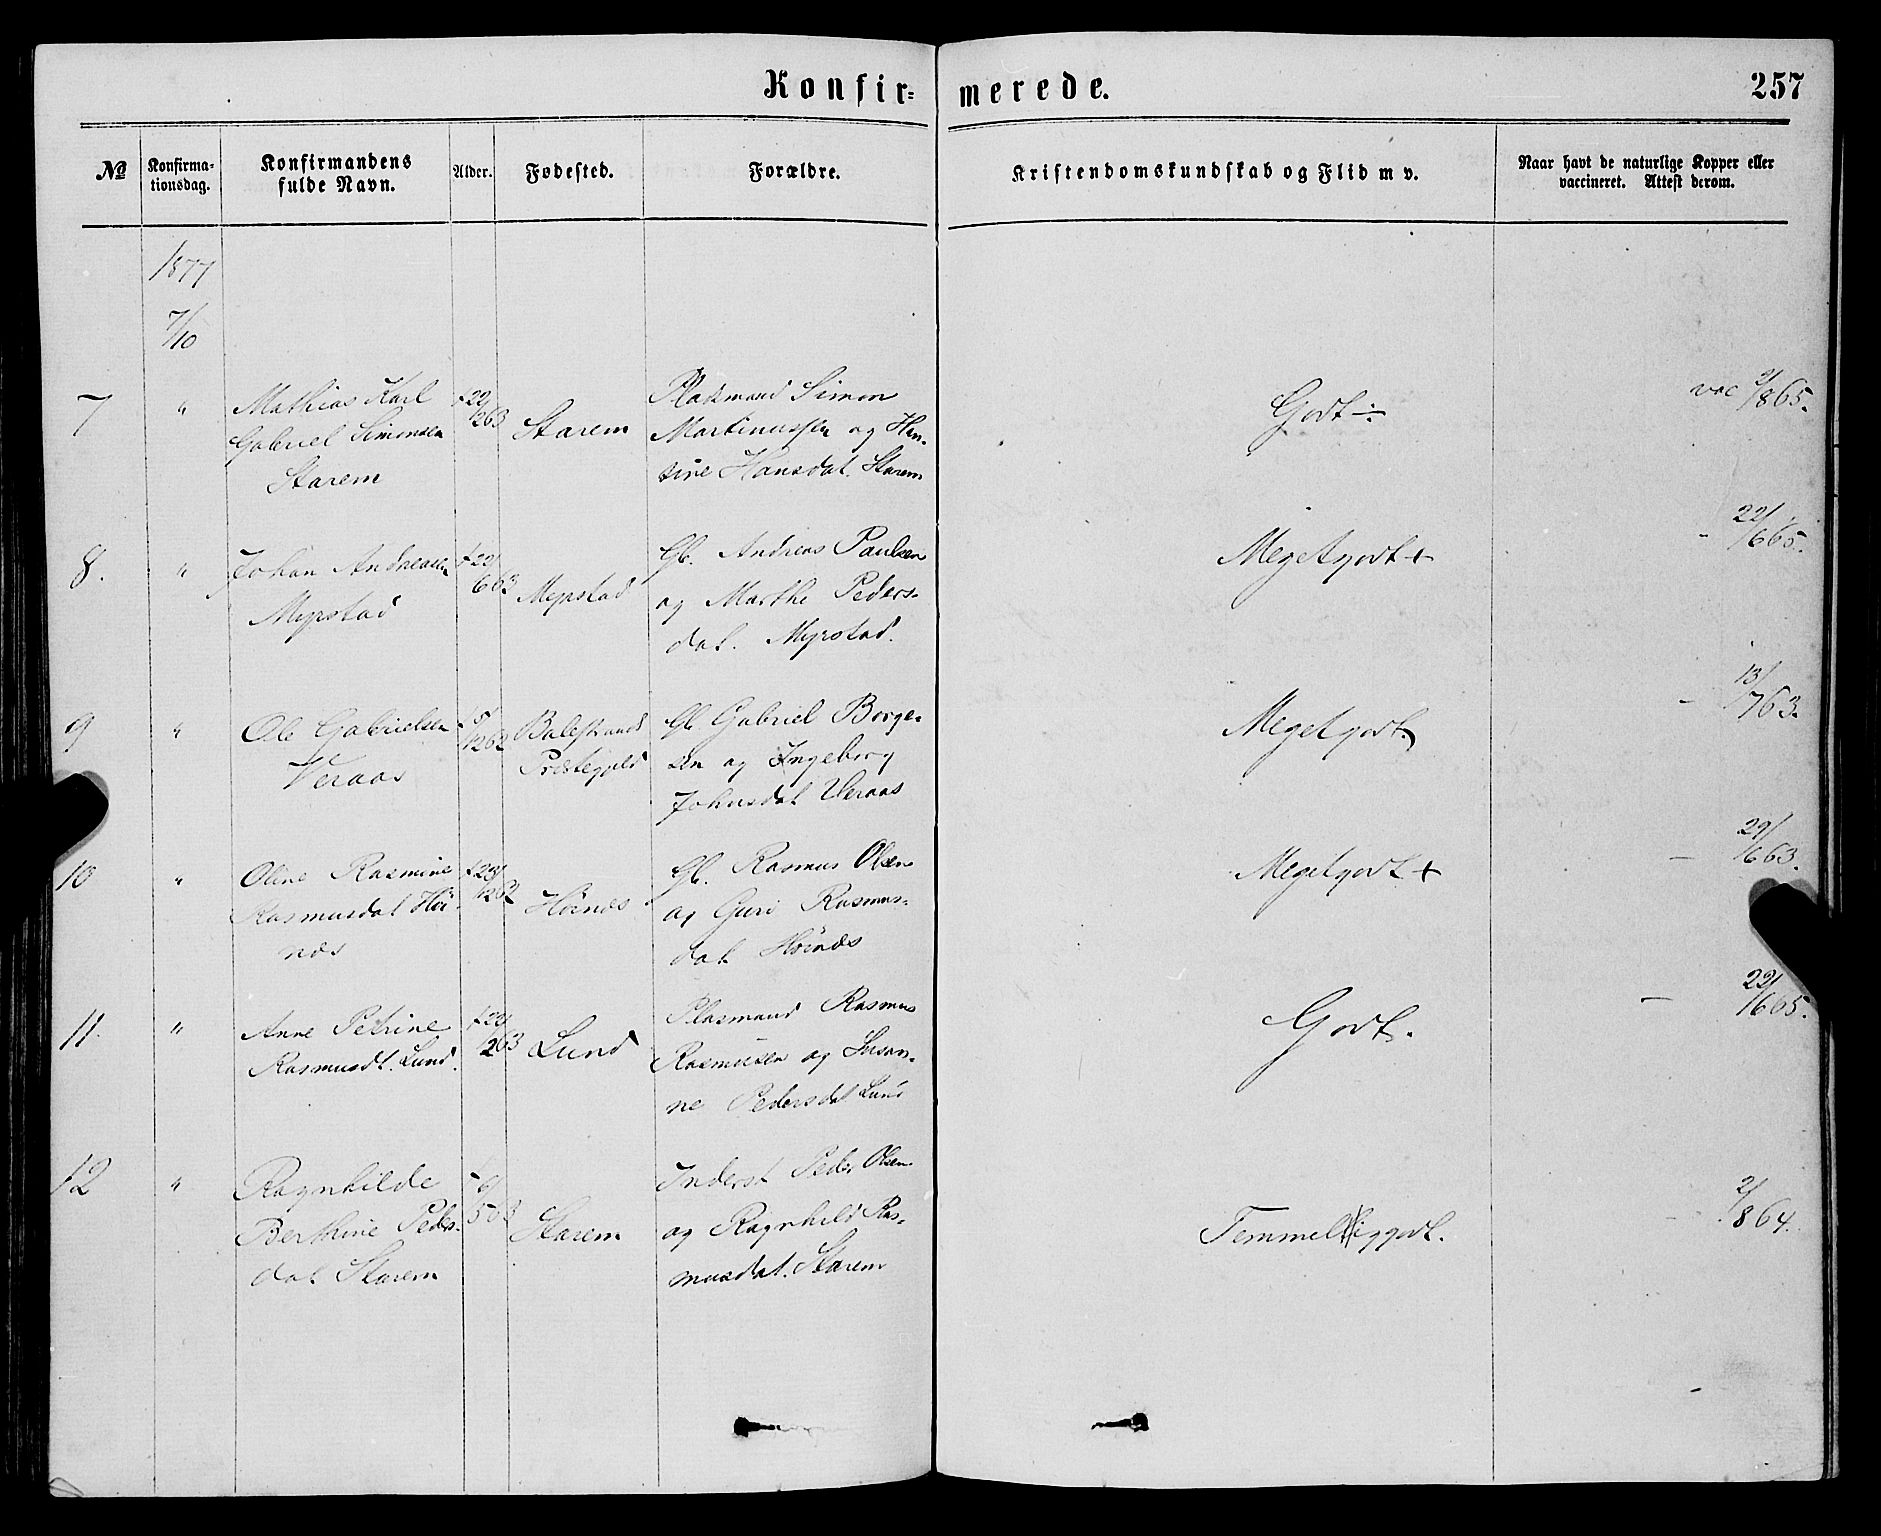 Konfir=merede.
257
No
Konfirma=
tionsdag.
Konfirmandens
fulde Navn.
Alder.
Fødested.
Forældre.
Kristendomskundskab og Flid m v.
Naar havt de naturlige Kopper eller
vaccineret. Attest derom.
1877
7/10
7 " Mathias Karl
Gabriel Simonsen
Starem
f 22/1263
Starem
Pladsmand Simon
Martinussen og Han-
sine Hansdat. Starem
Godt ÷
vac 2/865.
8. " Johan Andreasen
Myrstad
f 22/663
Myrstad
Gb. Andreas Paulsen
og Marthe Peders-
dat. Myrstad.
Megetgodt +
" 22/665.
9 " Ole Gabrielsen
Veraas
f 5/1262
Balestrands
Præstegjeld
Gb Gabriel Borge-
sen og Ingeborg
Johnsdat Veraas
Megetgodt.
– 13/763.
10 " Oline Rasmine
Rasmusdat Höi-
næs
f 23/1262
Höinæs
Gb. Rasmus Olsen
og Guri Rasmus-
dat Höinæs
Megetgodt +
– 29/663.
11. " Anne Petrine
Rasmusdt. Lund.
Lund
Pladsmand Rasmus
Rasmusen og Susan-
ne Pedersdat Lund
Godt.
– 22/665.
12 " Ragnhilde
Berthine Peders-
dat Starem
Starem
Inderst Peder Olsen
og Ragnhild Ras-
musdat. Starem
Temmeliggodt.
– 2/864.